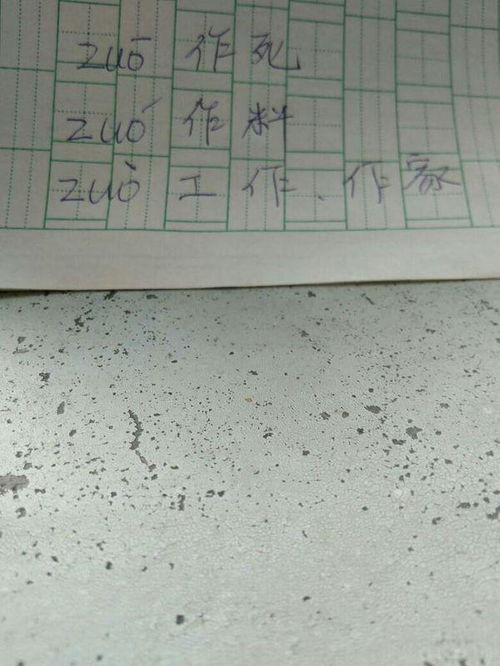 zuō 作死
zuó 作料
zuò 工作、作家